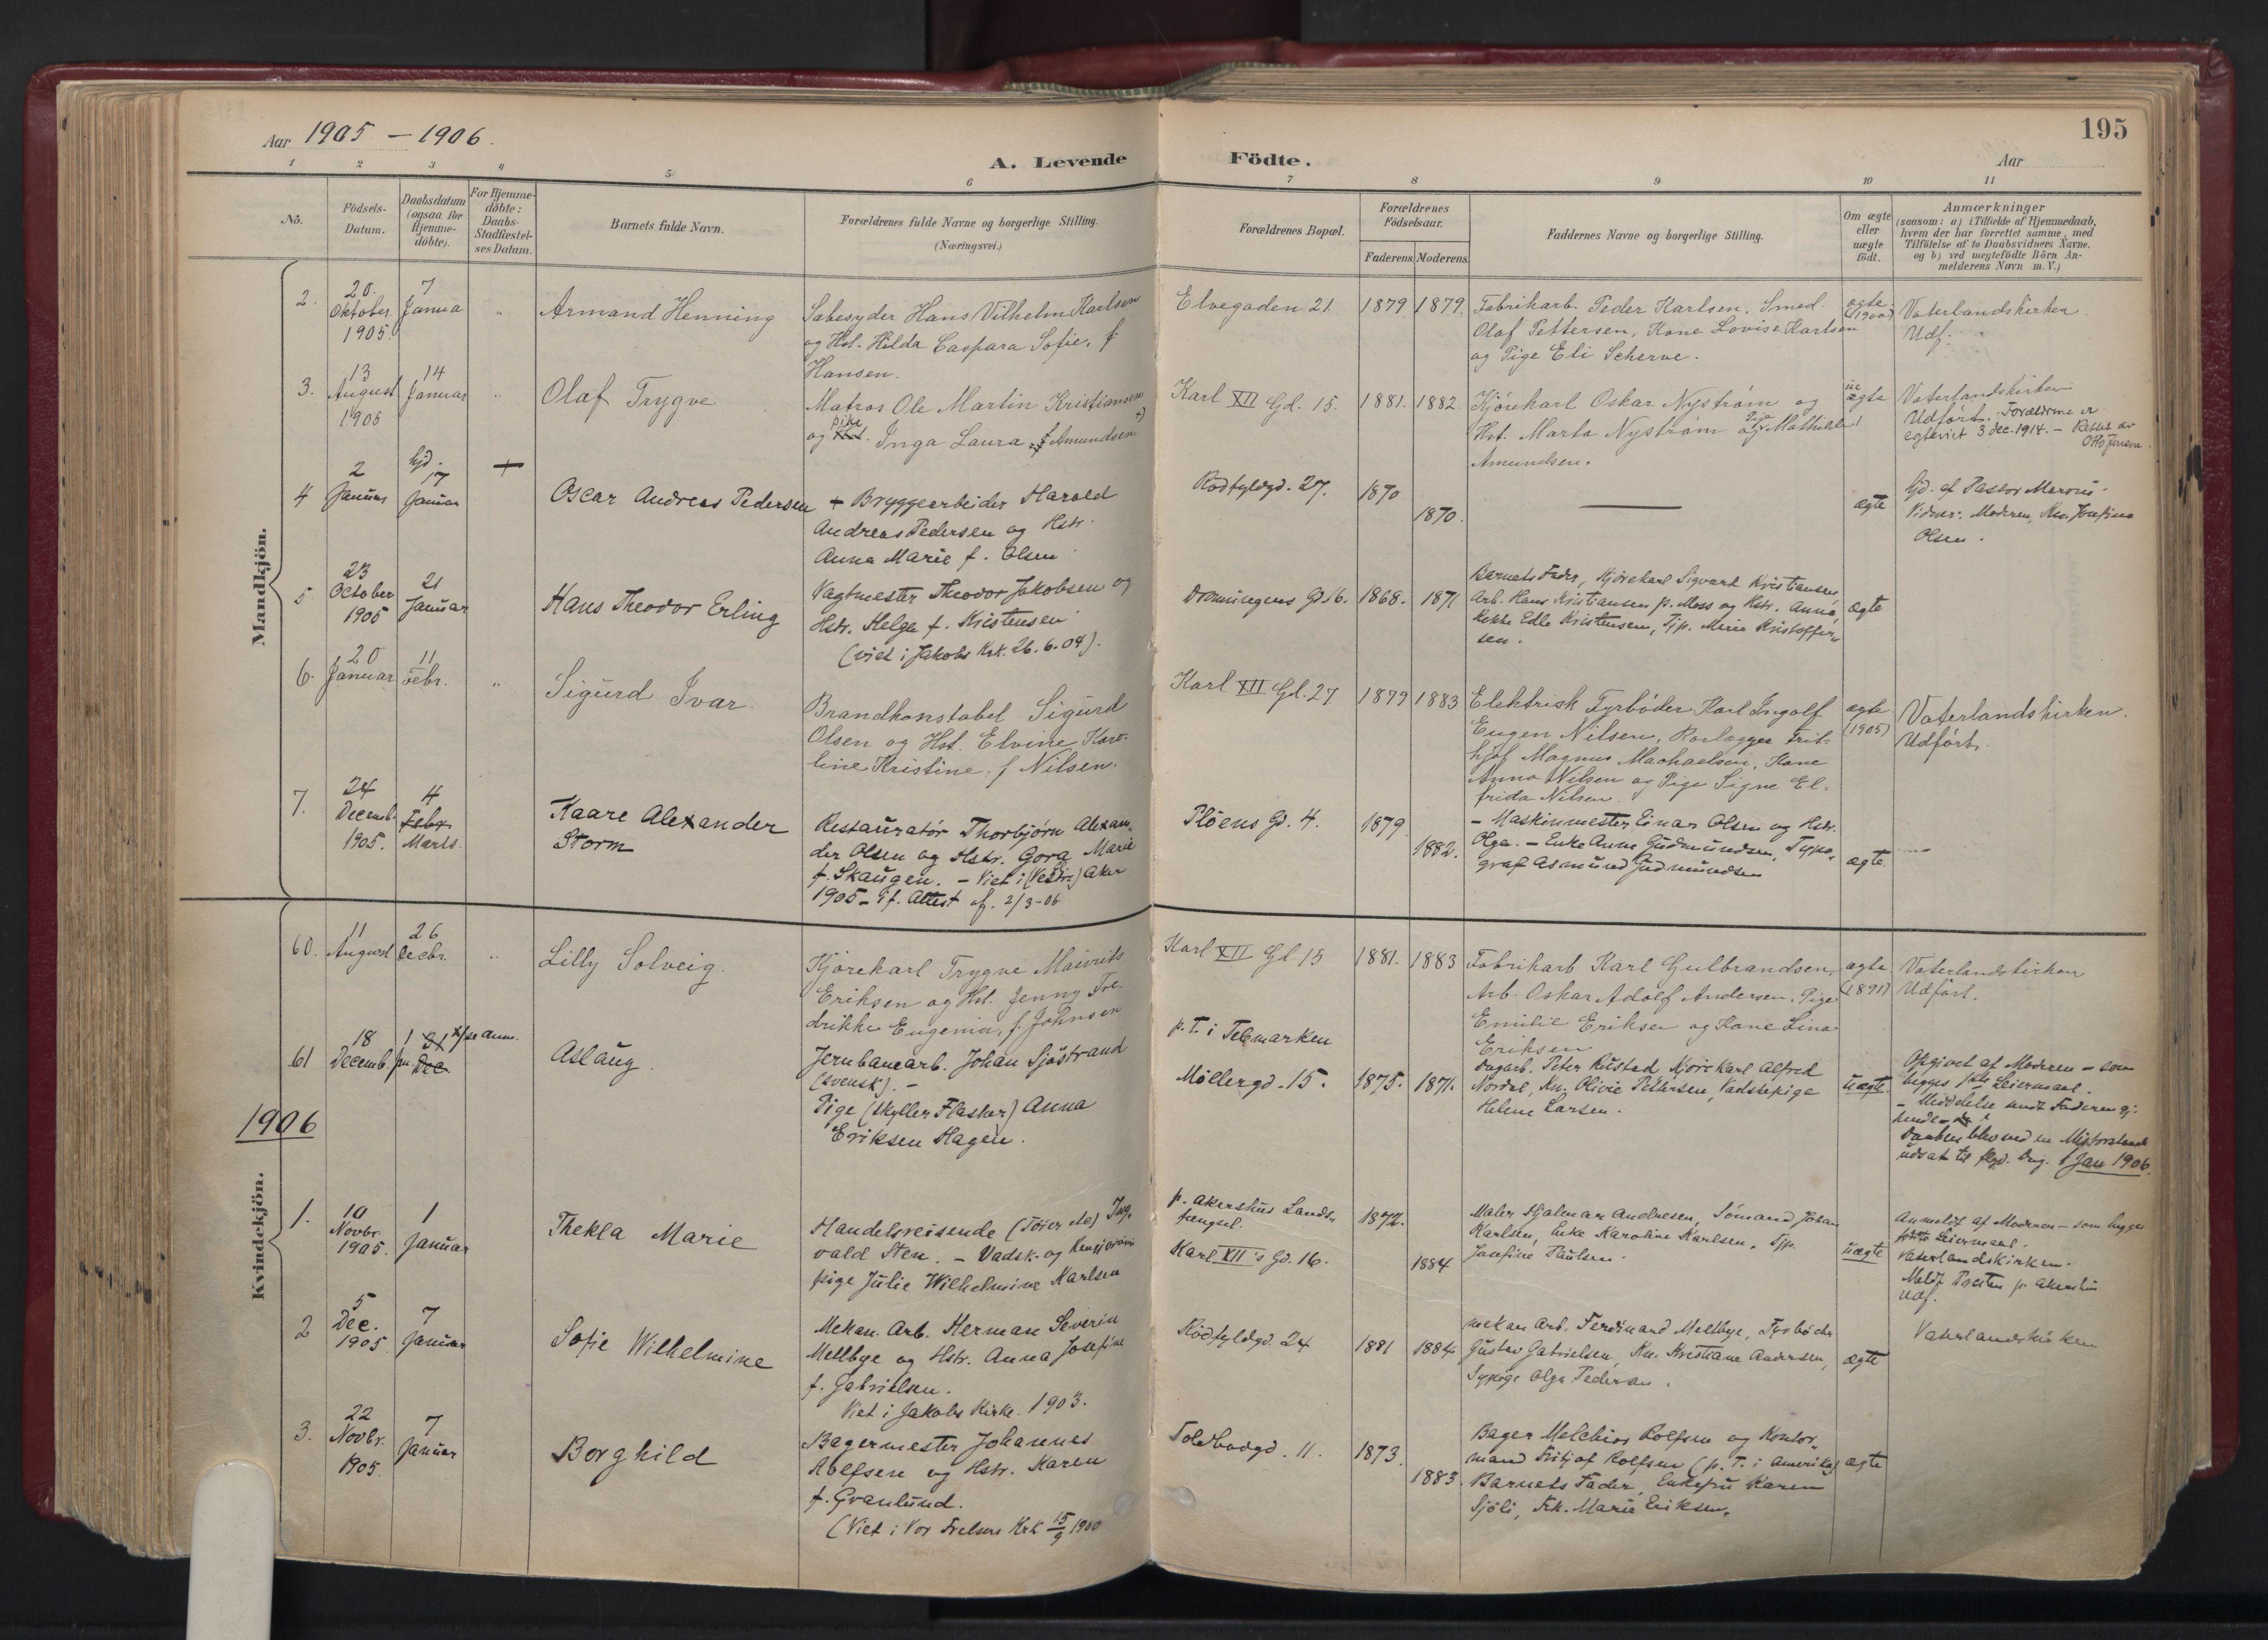 Aar 1905 – 1906.
A. Levende
Födte.
195
Aar
1 2 3 4 5 6 7 8 9 10 11
No.
Födsels-
Datum.
Daabsdatum
(ogsaa for
Hjemme-
döbte).
For Hjemme-
döbte:
Daabs-
Stadfæstel-
ses Datum.
Barnets fulde Navn.
Forældrenes fulde Navne og borgerlige Stilling.
(Næringsvei.)
Forældrenes Bopæl.
Forældrenes
Födselsaar.
Faderens. Moderens.
Faddernes Navne og borgerlige Stilling.
Om ægte
eller
uægte
födt.
Anmærkninger
(saasom: a) i Tilfælde af Hjemmedaab,
hvem der har forrettet samme, med
Tilföielse af to Daabsvidners Navne.
og b) ved uægtefödte Börn An-
melderens Navn m. V.)
Mandkjön.
2.
20.
Oktober
1905.
7
Janua
"
Armand Henning
Sæbesyder Hans Vilhelm Karlsen
og Hst. Hilda Caspara Sofie, f
Hansen.
Elvegaden 21.
1879 1879.
Fabrikarb. Peder Karlsen, Smed
Olaf Pettersen, Kone Lovise Karlsen
og Pige Eli Scherve.
ægte.
(1900)
Vaterlandskirken.
Udf.
3.
13
August
1905
14
Januar
"
Olaf Trygve
Matros Ole Martin Kristiansen
og pike Hst. Inga Laura f Amundsen
Karl XII Gd. 15.
1881. 1882.
Kjörekarl Oskar Nyström og
Hst. Marta Nyström og Pige Mathilde
Amundsen.
ue
ægte
Vaterlandskirken
Udført. Forældrene er
egteviet 3 dec. 1914. – Rettet av
Otto Jensen.
4
2
Januar
hjd.
7
Januar
+
Oscar Andreas Pedersen
+ Bryggearbeider Harald
Andreas Pedersen og Hstr.
Anna Marie f. Olsen
Rødfyldgd. 27.
1870
1870.
ægte
hjd. af Pastor
Vidner: Moderen, Kn. Josefine
Olsen.
5
23
October
1905
21
Januar
Hans Theodor Erling
Vagtmester Theodor Jakobsen og
Hstr. Helga f. Kristensen
(viet i Jakobs Krk. 26. 6. 04).
Dronningens Gd. 16.
1868. 1871
Barnets Fader, Kjörekarl Sigvart Kristiansen,
Arb. Hans Kristiansen p. Moss og Hstr. Anna,
Edle Kristensen, Tjp. Marie Kristoffer-
sen.
ægte
6.
20
Januar
11
Febr.
"
Sigurd Ivar
Brandkonstabel Sigurd
Olsen og Hst. Elvine Karo-
line Kristine, f Nilsen.
Karl XII Gd. 27
1879 1883
Elektrisk Fyrbøder Karl Ingolf
Eugen Nilsen, Rørlægger Frit-
hjof Magnus Machaelsen, Kone
Anna Nilsen og Pige Signe El-
frida Nilsen.
ægte
(1905)
Vaterlandskirken.
Udført.
7.
24
Decemb.
1905.
4
Febr
Marts.
Kaare Alexander
Storm
Restauratør Thorbjørn Alexan-
der Olsen og Hstr. Gora Marie
f. Skaugen. – Viet i (Vestre) Aker
1905 – if. Attest af. 2/3-06
Pløens Gd. 4.
1879.
1882.
– Maskinmester Einar Olsen og Hstr.
Olga. – Enke Anne Gudmundsen, Typo-
graf Asmund Gudmundsen
ægte.
60.
11
August
26
Decbr.
"
Lilly Solveig.
Kjørekarl Trygve Mauritz
Eriksen og Hst. Jenny Fre-
drikke Eugenia, f. Johnsen
Karl XII Gd. 15
1881. 1883
Fabrikarb Karl Gulbrandsen,
Arb. Oskar Adolf Andersen, Pige
Emilie Eriksen og Kone Lina
Eriksen
ægte
(1891)
Vaterlandskirken
Udført.
61
18
Decemb.
1 31 x/se Anm.
Jan Dec
Aslaug.
Jernbanearb. Johan Sjöstrand
(svensk). –
Pige (skyller Flasker) Anna
Eriksen Hagen.
p. T. i Telemarken
Møllergd. 15.
1875. 1871.
Dagarb. Peter Rustad, Kjørekarl Alfred
Nordal, Kn. Olivie Pettersen, Vadskepige
Helene Larsen.
uægte
Opgivet af Moderen – som
begges Leiermaal.
– Meddelse sendt Faderen gj.
hende –
Daaben blev ved en Misforstaaelse
udsat til flgd. Dag. 1 Jan 1906.
1906
Kvindekjön.
1.
10
Novbr.
1905.
1
Januar
Thekla Marie
Handelsreisende (Töier etc) Ing-
vald Sten. – Vadsk. og Rengjørings
pige Julie Wilhelmine Karlsen
p. Akershus Lands-
fængsel.
Karl XII's Gd. 16.
1872.
1884
Maler Hjalmar Andresen, Sömand Johan
Karlsen, Enke Karoline Karlsen, Tjp.
Josefine Paulsen.
uægte
Anmeldt af Moderen – som begges
første Leiermaal.
Vaterlandskirken.
Meldt Presten p. Akershus
Udf.
2
5
Dec.
1905
7
Januar
Sofie Wilhelmine
Mekan. Arb. Herman Severin
Mellbye og Hstr. Anna Josefine
f. Gabrielsen.
Viet i Jakobs Kirke. 1903.
Rødfyldgd. 24
1881 1884
Mekan Arb. Ferdinand Mellbye, Fyrbøder
Gustav Gabrielsen, Kn. Kristiane Andersen,
Sypige Olga Pedersen.
ægte
Vaterlandskirken
3.
22
Novbr.
1905.
7
Januar
Borghild
Bagermester Johannes
Rolfsen og Hstr. Karen
f. Granlund.
(Viet i Vor Frelsers Krk 15/9 1900
Toldbodgd. 11.
1873.
1883.
Bager Melchior Rolfsen og Kontor-
mand Fritjof Rolfsen (p. T. i Amerika)
Barnets Fader, Enkefru Karen
Sjöli, Frk. Marie Eriksen.
ægte